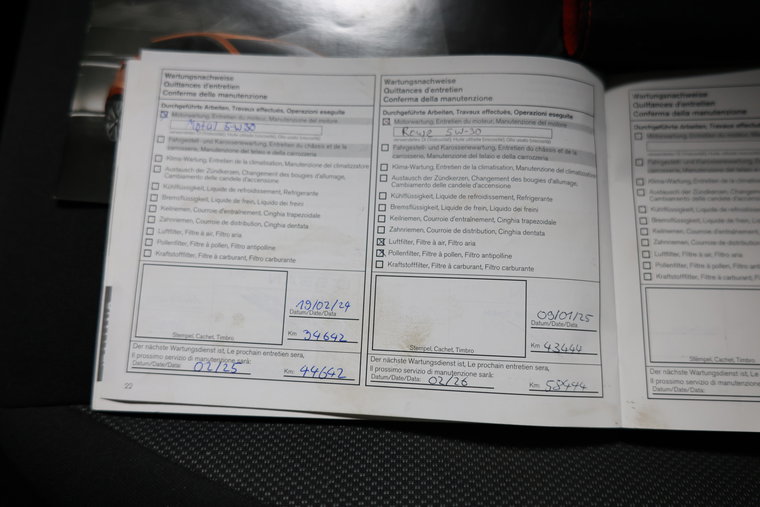 Wartungsnachweise
Quittances d'entretien
Conferma della manutenzione
Durchgeführte Arbeiten, Travaux effectués, Operazioni eseguite
Motorwartung, Entretien du moteur, Manutenzione del motore
Total 5-W30
Fahrgestell- und Karossenewartung, Entretien du châssis et de la
carrosserie, Manutenzione del telaio e della carrozzeria
Klima-Wartung, Entretien de la climatisation, Manutenzione del climatizzatore
Austausch der Zündkerzen, Changement des bougies d'allumage,
Cambiamento delle candele d'accensione
Kühlflüssigkeit, Liquide de refroidissement, Refrigerante
Bremsflüssigkeit, Liquide de frein, Liquido dei freini
Keilriemen, Courroie d'entraînement, Cinghia trapezoidale
Zahnriemen, Courroie de distribution, Cinghia dentata
Luftfilter, Filtre à air, Filtro aria
Pollenfilter, Filtre à pollen, Filtro antipolline
Kraftstofffilter, Filtre à carburant, Filtro carburante
19/02/24
Datum/Date/Data
Stempel, Cachet, Timbro
Km 34642
Der nächste Wartungsdienst ist, Le prochain entretien sera,
Il prossimo servizio di manutenzione sarà:
Datum/Date/Data: 02/25 Km: 44642
22
Wartungsnachweise
Quittances d'entretien
Conferma della manutenzione
Durchgeführte Arbeiten, Travaux effectués, Operazioni eseguite
Motorwartung, Entretien du moteur, Manutenzione del motore
Rowe 5W-30
Fahrgestell- und Karossenewartung, Entretien du châssis et de la
carrosserie, Manutenzione del telaio e della carrozzeria
Klima-Wartung, Entretien de la climatisation, Manutenzione del
Austausch der Zündkerzen, Changement des bougies d'allumage,
Cambiamento delle candele d'accensione
Kühlflüssigkeit, Liquide de refroidissement, Refrigerante
Bremsflüssigkeit, Liquide de frein, Liquido dei freini
Keilriemen, Courroie d'entraînement, Cinghia trapezoidale
Zahnriemen, Courroie de distribution, Cinghia dentata
Luftfilter, Filtre à air, Filtro aria
Pollenfilter, Filtre à pollen, Filtro antipolline
Kraftstofffilter, Filtre à carburant, Filtro carburante
09/01/25
Datum/Date/Data
Stempel, Cachet, Timbro
Km 43444
Der nächste Wartungsdienst ist, Le prochain entretien sera,
Il prossimo servizio di manutenzione sarà:
Datum/Date/Data: 02/26 Km: 55444
Wartungsnachweise
Quittances d'entretien
Conferma della manutenzione
Durchgeführte Arbeiten, Travaux
Motorwartung, Entretien du moteur
Fahrgestell- und Karossenewartung
carrosserie, Manutenzione del telaio e
Klima-Wartung, Entretien de la
Austausch der Zündkerzen,
Cambiamento delle candele
Kühlflüssigkeit, Liquide de
Bremsflüssigkeit, Liquide de frein
Keilriemen, Courroie d'entraînement
Zahnriemen, Courroie de distribution
Luftfilter, Filtre à air, Filtro aria
Pollenfilter, Filtre à pollen, Filtro
Kraftstofffilter, Filtre à carburant
Stempel, Cachet, Timbro
Der nächste Wartungsdienst ist, Le
Il prossimo servizio di manutenzione
Datum/Date/Data: